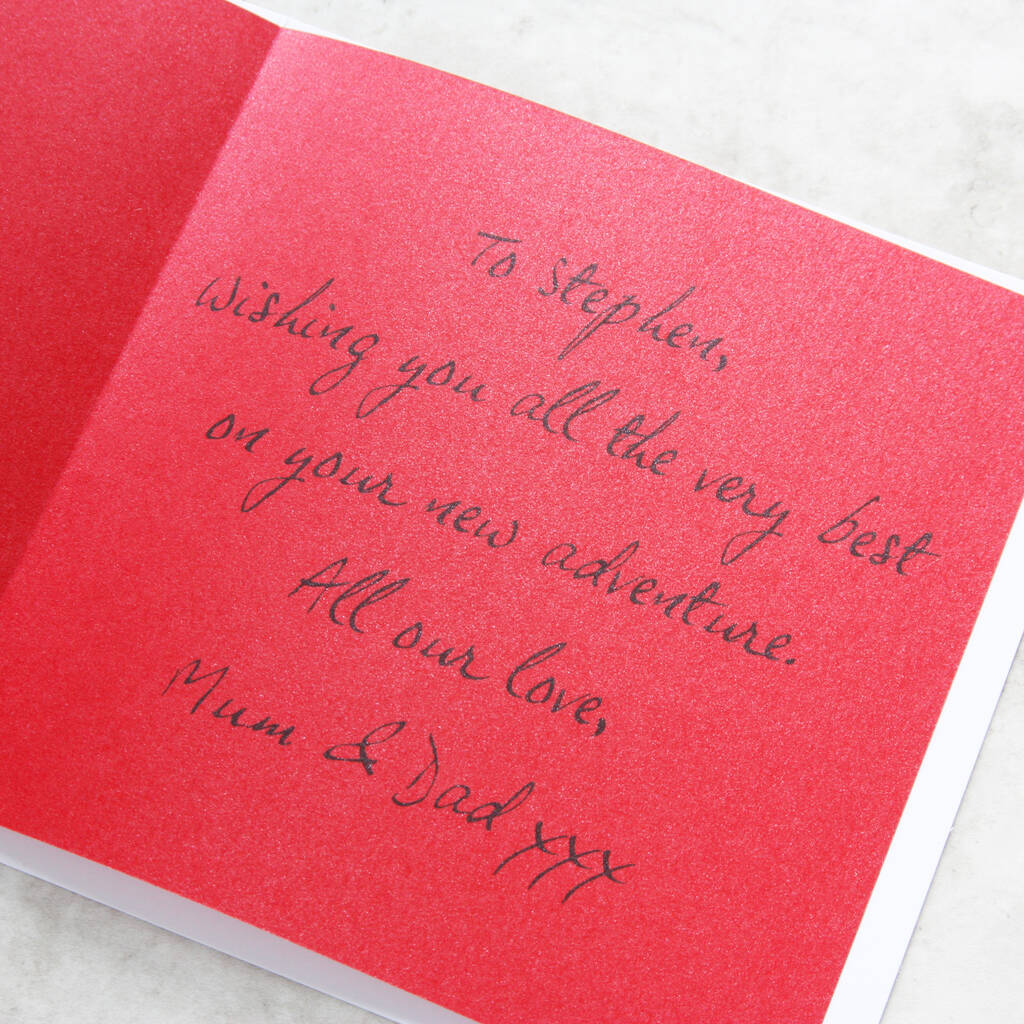 To Stephen,
Wishing you all the very best
on your new adventure.
All our love,
Mum & Dad xxx